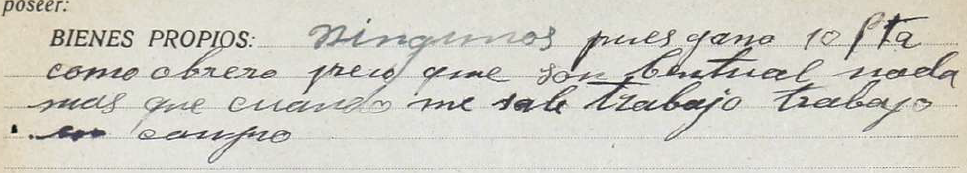 poseer:
BIENES PROPIOS: Ningunos pues gano 10 Pta
como obrero pero que son bentual nada
mas que cuando me sale trabajo trabajo
en campo